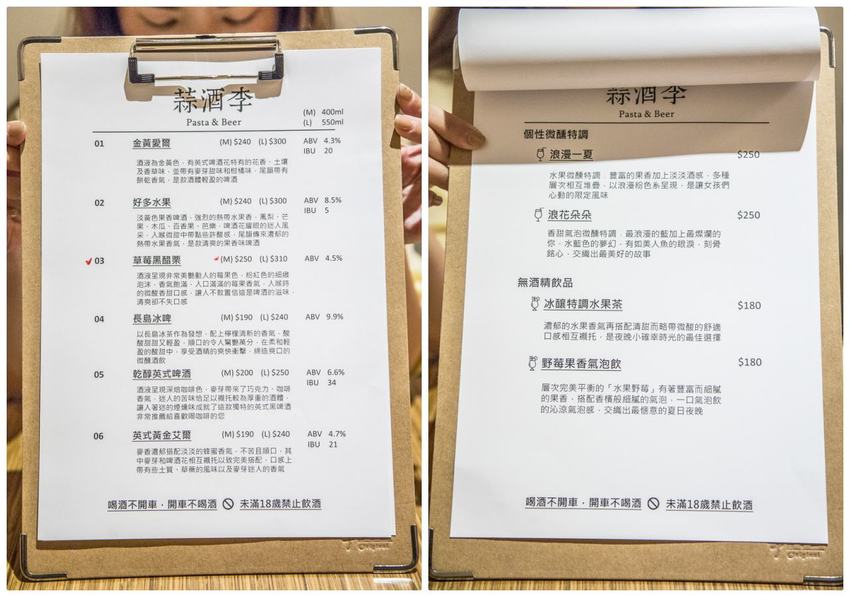 蒜酒李
Pasta & Beer
(M) 400ml
(L) 550ml
01 金黃愛爾 (M) $240 (L) $300 ABV 4.3%
IBU 20
酒液為金黃色，有英式啤酒花特有的花香、土壤
及香草味，並帶有麥芽甜味和柑橘味，尾韻帶有
餅乾香氣，是款酒體輕盈的啤酒
02 好多水果 (M) $240 (L) $300 ABV 8.5%
IBU 5
淺黃色果香啤酒，強烈的熱帶水果香，鳳梨、芒
果、木瓜、百香果、芭樂，啤酒花耀眼的迷人風
采，入喉微甜中帶點些許酸感，尾韻傳來濃郁的
熱帶水果香氣，是款清爽的果香味啤酒
03 草莓黑醋栗 (M) $250 (L) $310 ABV 4.5%
酒液呈現非常美艷動人的莓果色，粉紅色的細緻
泡沫，香氣飽滿，入口滿滿的莓果香氣，入喉時
的微酸香甜口感，讓人不敢置信這是啤酒的滋味，
清爽卻不失口感
04 長島冰啤 (M) $190 (L) $240 ABV 9.9%
以長島冰茶作為發想，配上檸檬清新的香氣，酸
酸甜甜又輕盈，順口的令人驚艷萬分，在柔和輕
盈的酸甜中，享受酒精的爽快衝擊，締造爽口的
微醺酒飲
05 乾醇英式啤酒 (M) $200 (L) $250 ABV 6.6%
IBU 34
酒液呈現深焙咖啡色，麥芽帶來了巧克力、咖啡
香氣，迷人的苦味恰足以襯托較為厚重的酒體，
讓人著迷的煙燻味成就了這款獨特的英式黑啤酒
非常推薦給喜歡喝咖啡的您
06 英式黃金艾爾 (M) $190 (L) $240 ABV 4.7%
IBU 21
麥香濃郁搭配淡淡的蜂蜜香氣，不苦且順口，其
中麥芽和啤酒花相互襯托以致完美搭配，口感上
帶有些土質、草藥的風味以及麥芽迷人的香氣
喝酒不開車，開車不喝酒 未滿18歲禁止飲酒
蒜酒李
Pasta & Beer
個性微醺特調
浪漫一夏 $250
水果微醺特調，豐富的果香加上淡淡酒感，多種
層次相互堆疊，以浪漫粉色系呈現，是讓女孩們
心動的限定風味
浪花朵朵 $250
香甜氣泡微醺特調，最浪漫的藍加上最燦爛的
你，水藍色的夢幻，有如美人魚的眼淚，刻骨
銘心，交織出最美好的故事
無酒精飲品
冰釀特調水果茶 $180
濃郁的水果香氣再搭配清甜而略帶微酸的舒適
口感相互襯托，是夜晚小確幸時光的最佳選擇
野莓果香氣泡飲 $180
層次完美平衡的「水果野莓」有著豐富而細膩
的果香，搭配香檳般細膩的氣泡，一口氣泡飲
的沁涼氣泡感，交織出最愜意的夏日夜晚
喝酒不開車，開車不喝酒 未滿18歲禁止飲酒